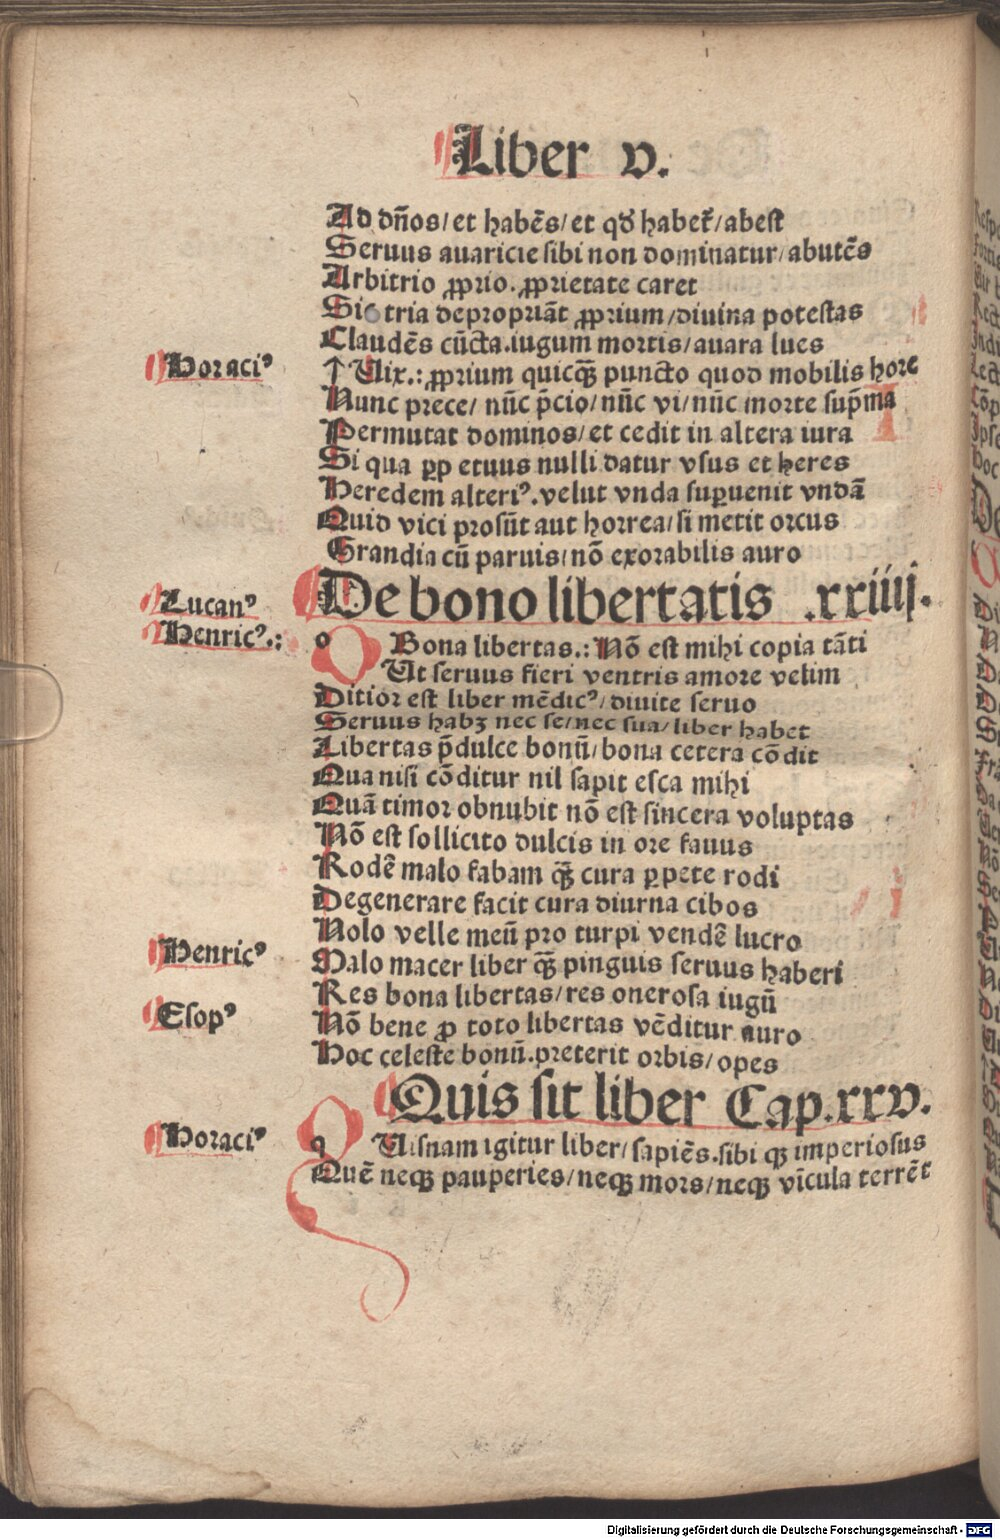 Liber v.
Ad dn̄os/et habēs/et qd habet̄/abest
Seruus auaricie sibi non dominatur/abutēs
Arbitrio ꝓprio.ꝓprietate caret
Sic tria depropriāt ꝓprium/diuina potestas
Claudēs cūcta.iugum mortis/auara lues
Horaciꝰ
↑ Uix.: ꝓprium quicq̄ꝫ puncto quod mobilis hore
Nunc prece/ nūc p̄cio/nūc vi/nūc morte sup̄ma
Permutat dominos/et cedit in altera iura
Si qua ꝑp etuus nulli datur vsus et heres
Heredem alteriꝰ.velut vnda suꝑuenit vndā
Quid vici prosūt aut horrea/si metit orcus
Grandia cū paruis/nō exorabilis auro
De bono libertatis .xxiiij.
Lucanꝰ
Henricꝰ.:
o Bona libertas.: Nō est mihi copia tāti
Ut seruus fieri ventris amore velim
Ditior est liber mēdicꝰ/diuite seruo
Seruus habꝫ nec se/nec sua/liber habet
Libertas p̄dulce bonū/bona cetera cōdit
Qua nisi cōditur nil sapit esca mihi
Quā timor obnubit nō est sincera voluptas
Nō est sollicito dulcis in ore fauus
Rodē malo fabam q̄ꝫ cura ꝑpete rodi
Degenerare facit cura diurna cibos
Nolo velle meū pro turpi vendē lucro
Henricꝰ
Malo macer liber q̄ꝫ pinguis seruus haberi
Res bona libertas/res onerosa iugū
Esopꝰ
Nō bene ꝓ toto libertas vēditur auro
Hoc celeste bonū.preterit orbis/opes
Quis sit liber Cap.xxv.
Horaciꝰ
q Uisnam igitur liber/sapiēs.sibi qꝫ imperiosus
Quē neqꝫ pauperies/neqꝫ mors/neqꝫ vīcula terrēt
Digitalisierung gefördert durch die Deutsche Forschungsgemeinschaft - DFG